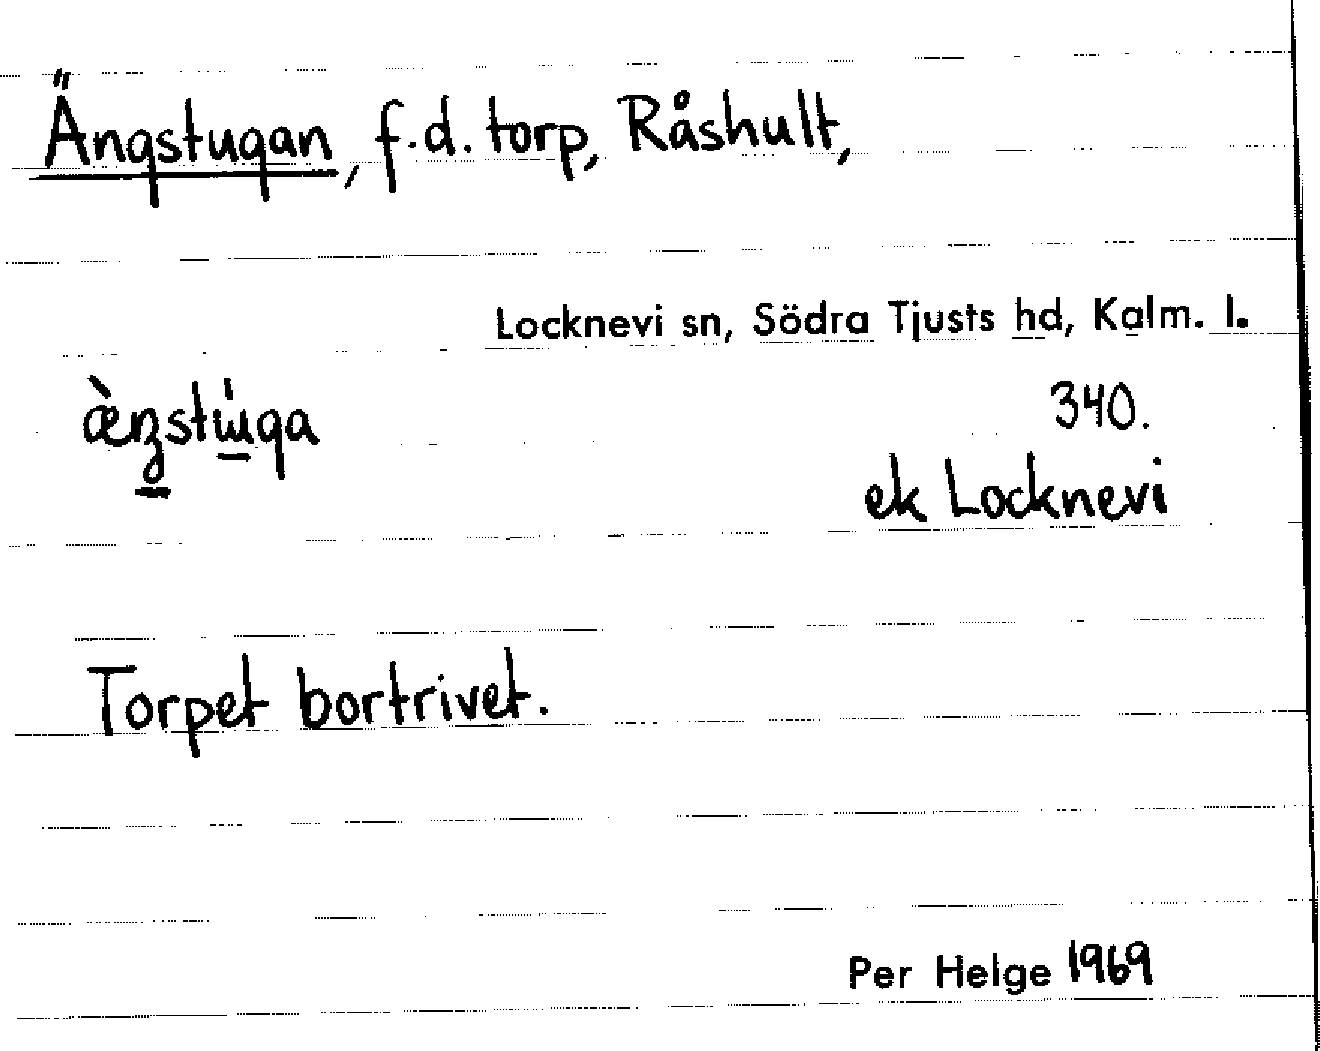 Ängstugan, f.d. torp, Råshult,
Locknevi sn, Södra Tjusts hd, Kalm. l.
340.
ek Locknevi
Torpet bortrivet.
Per Helge 1969